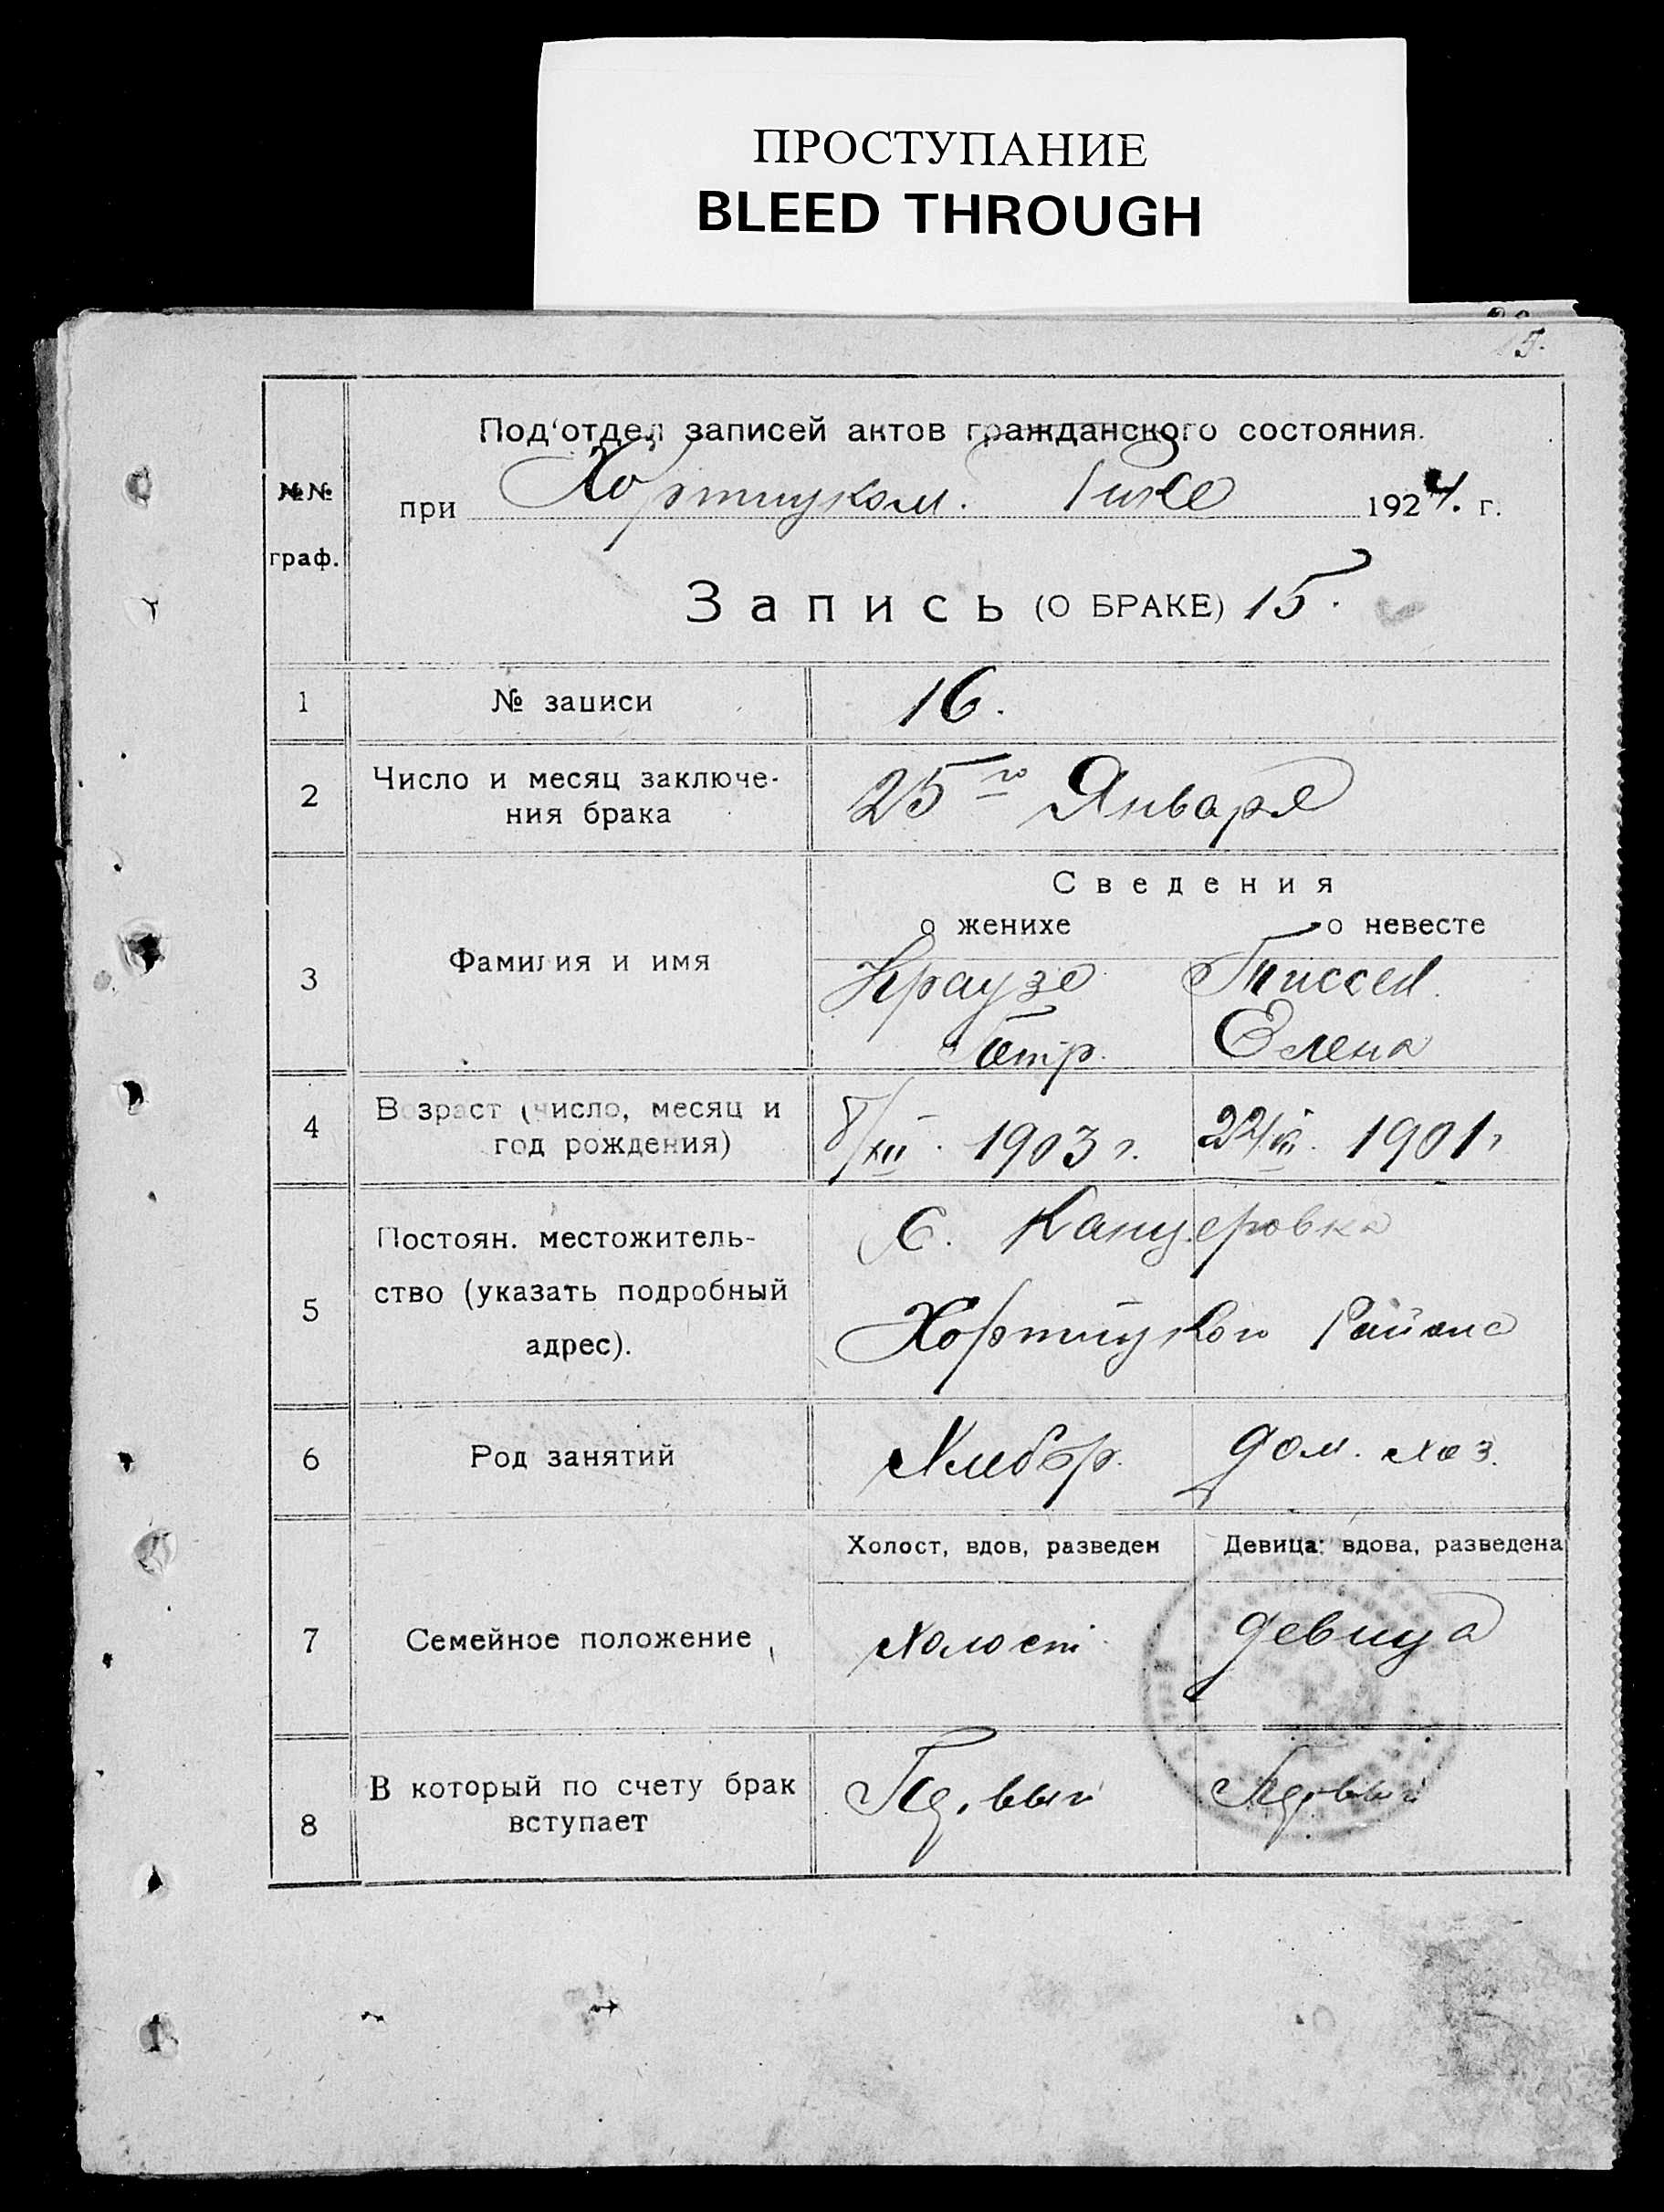 ПРОСТУПАНИЕ
BLEED THROUGH
15.
№№ граф.
Под'отдел записей актов гражданского состояния.
при Хортицком. Рике 1924. г.
Запись (О БРАКЕ) 15.
1 № записи 16.
2 Число и месяц заключе-
ния брака 25го Января
Сведения
о женихе о невесте
3 Фамилия и имя Краузе Тиссен
Петр. Елена
4 Возраст (число, месяц и
год рождения) 8/XII. 1903 г. 22/ 1901 г
5 Постоян. местожитель-
ство (указать подробный
адрес). С. Канцеровка
Хортицкого Района
6 Род занятий Хлебор. Дом. хоз.
Холост, вдов, разведен Девица, вдова, разведена
7 Семейное положение холост девица
8 В который по счету брак
вступает Первый Первый